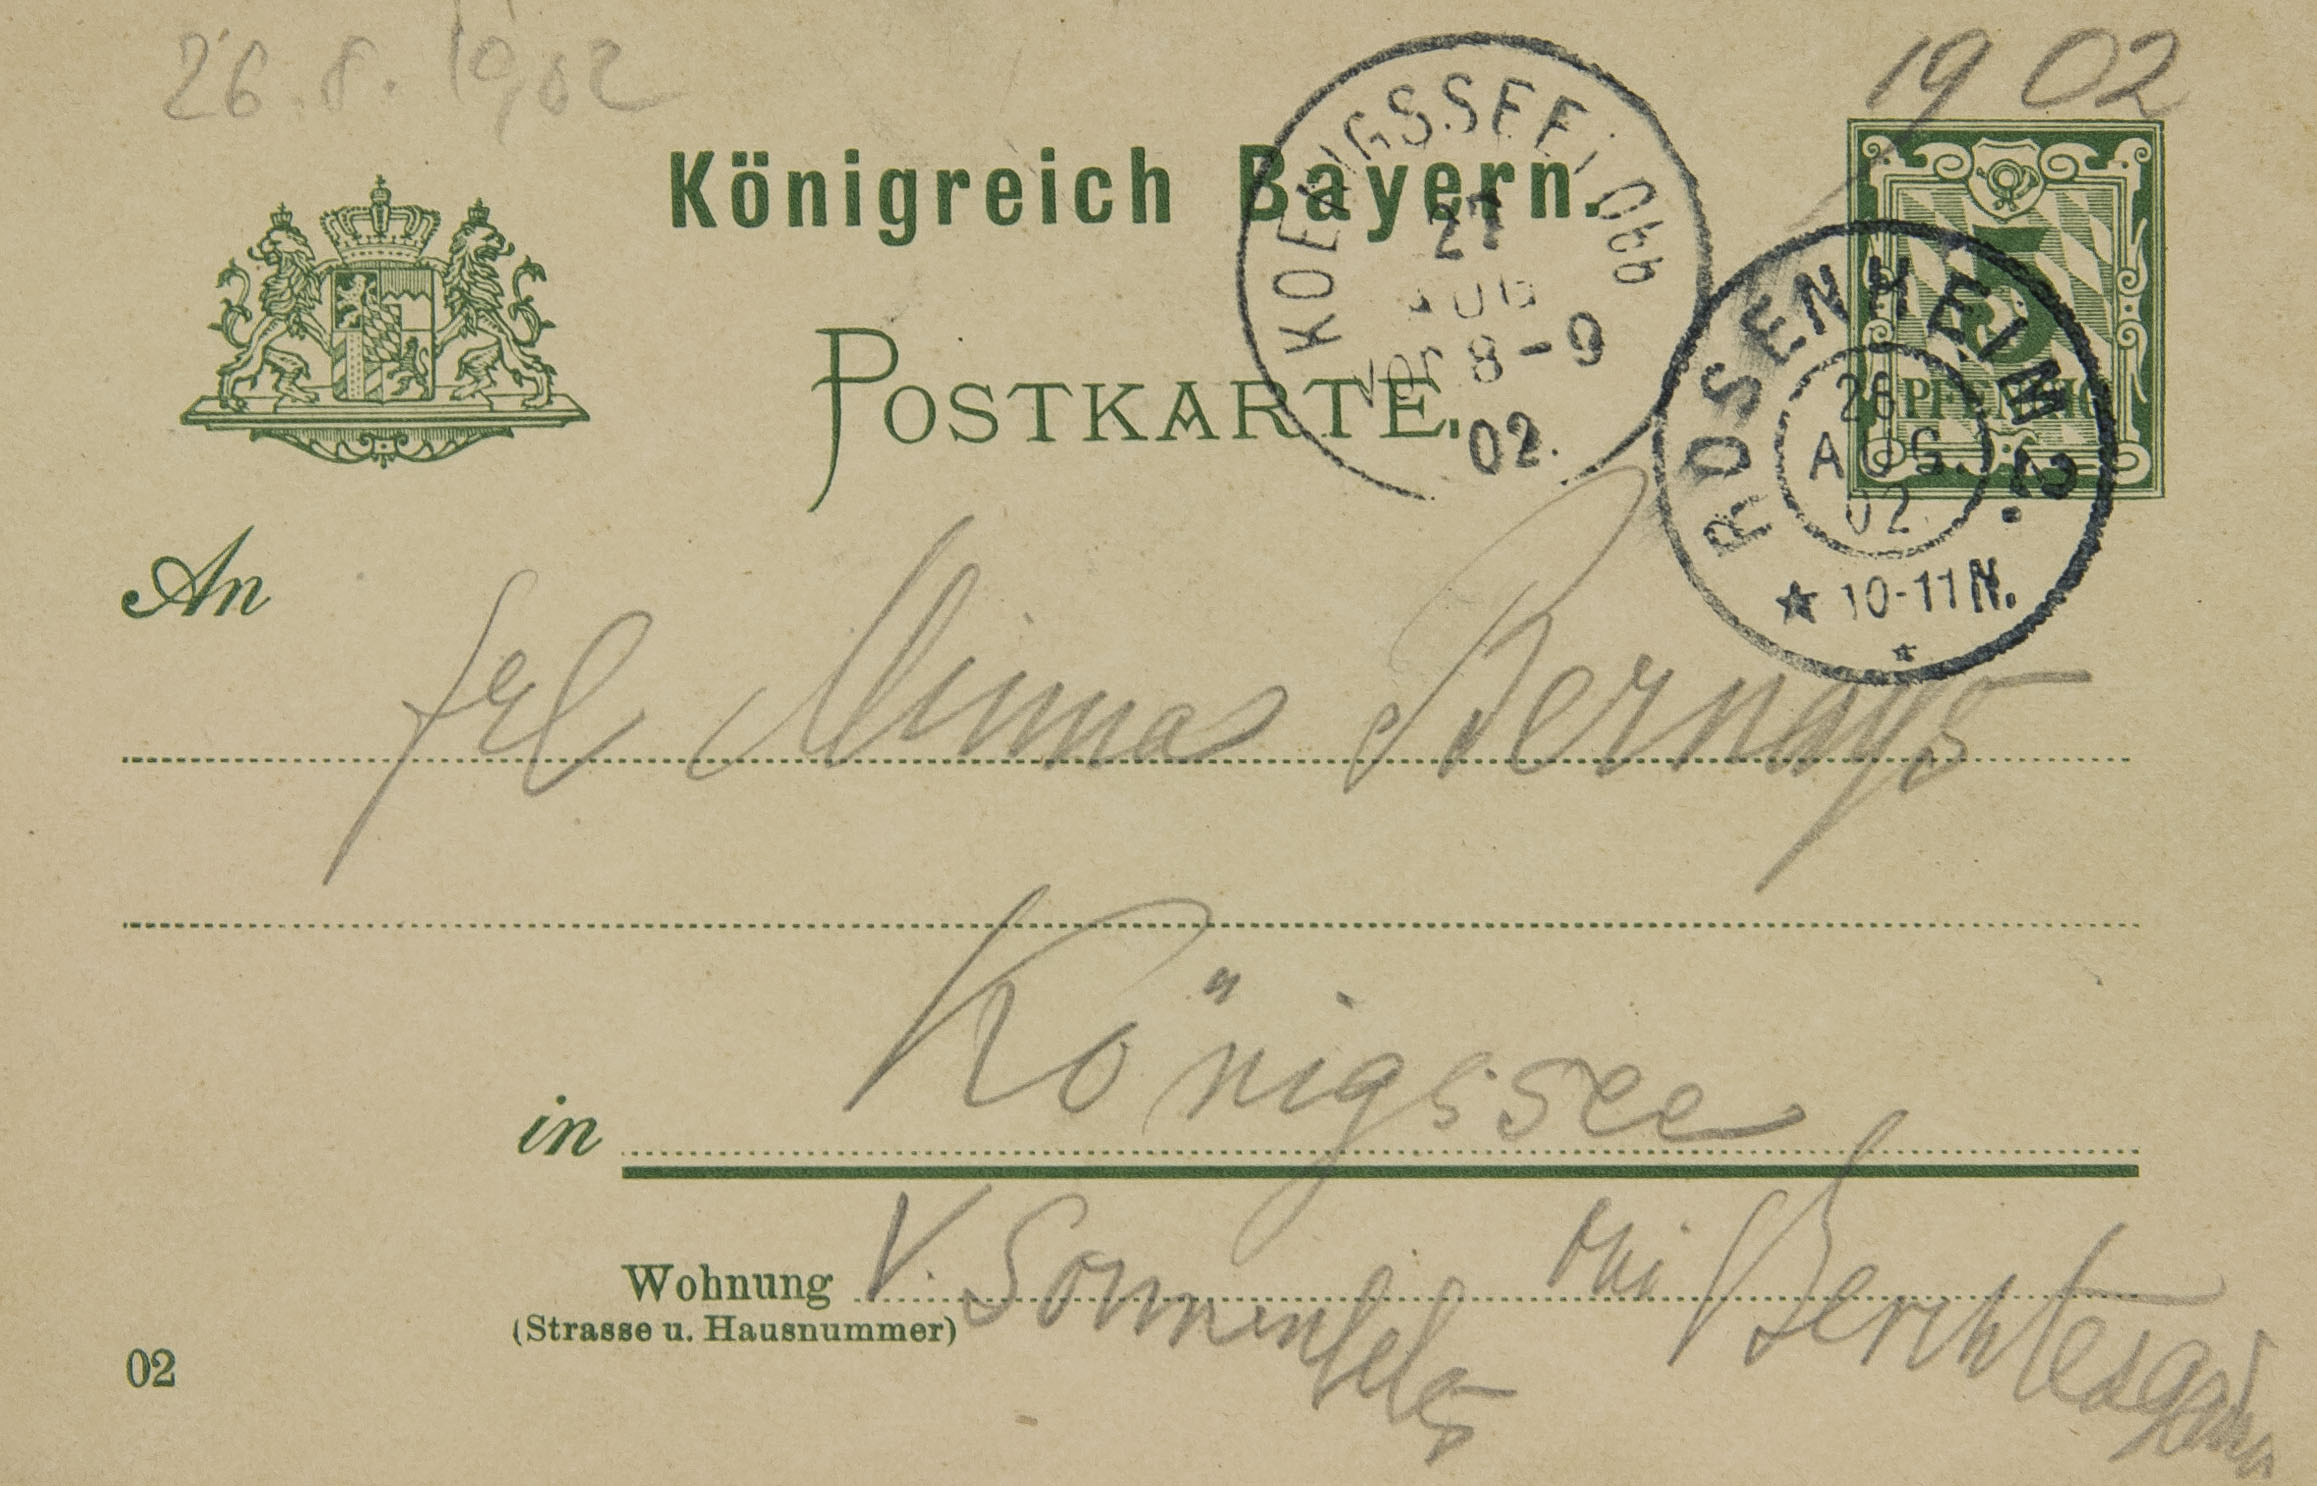 26.8.1902
1902
Königreich Bayern.
POSTKARTE.
KOENIGSSEE, Obb
27
AUG
Vor 8-9
02.
5
PFENNIG
ROSENHEIM 2.
26
AUG.
02
10-11 N.
An
Frl Minna Bernays
in
Königssee
bei Berchtesgaden
Wohnung
V. Sonnenfels
(Strasse u. Hausnummer)
02